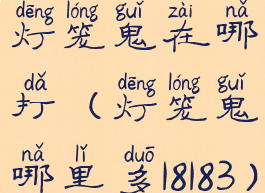 dēng lóng guǐ zài nǎ
灯笼鬼在哪
dǎ dēng lóng guǐ
打（灯笼鬼
nǎ lǐ duō
哪里多18183）